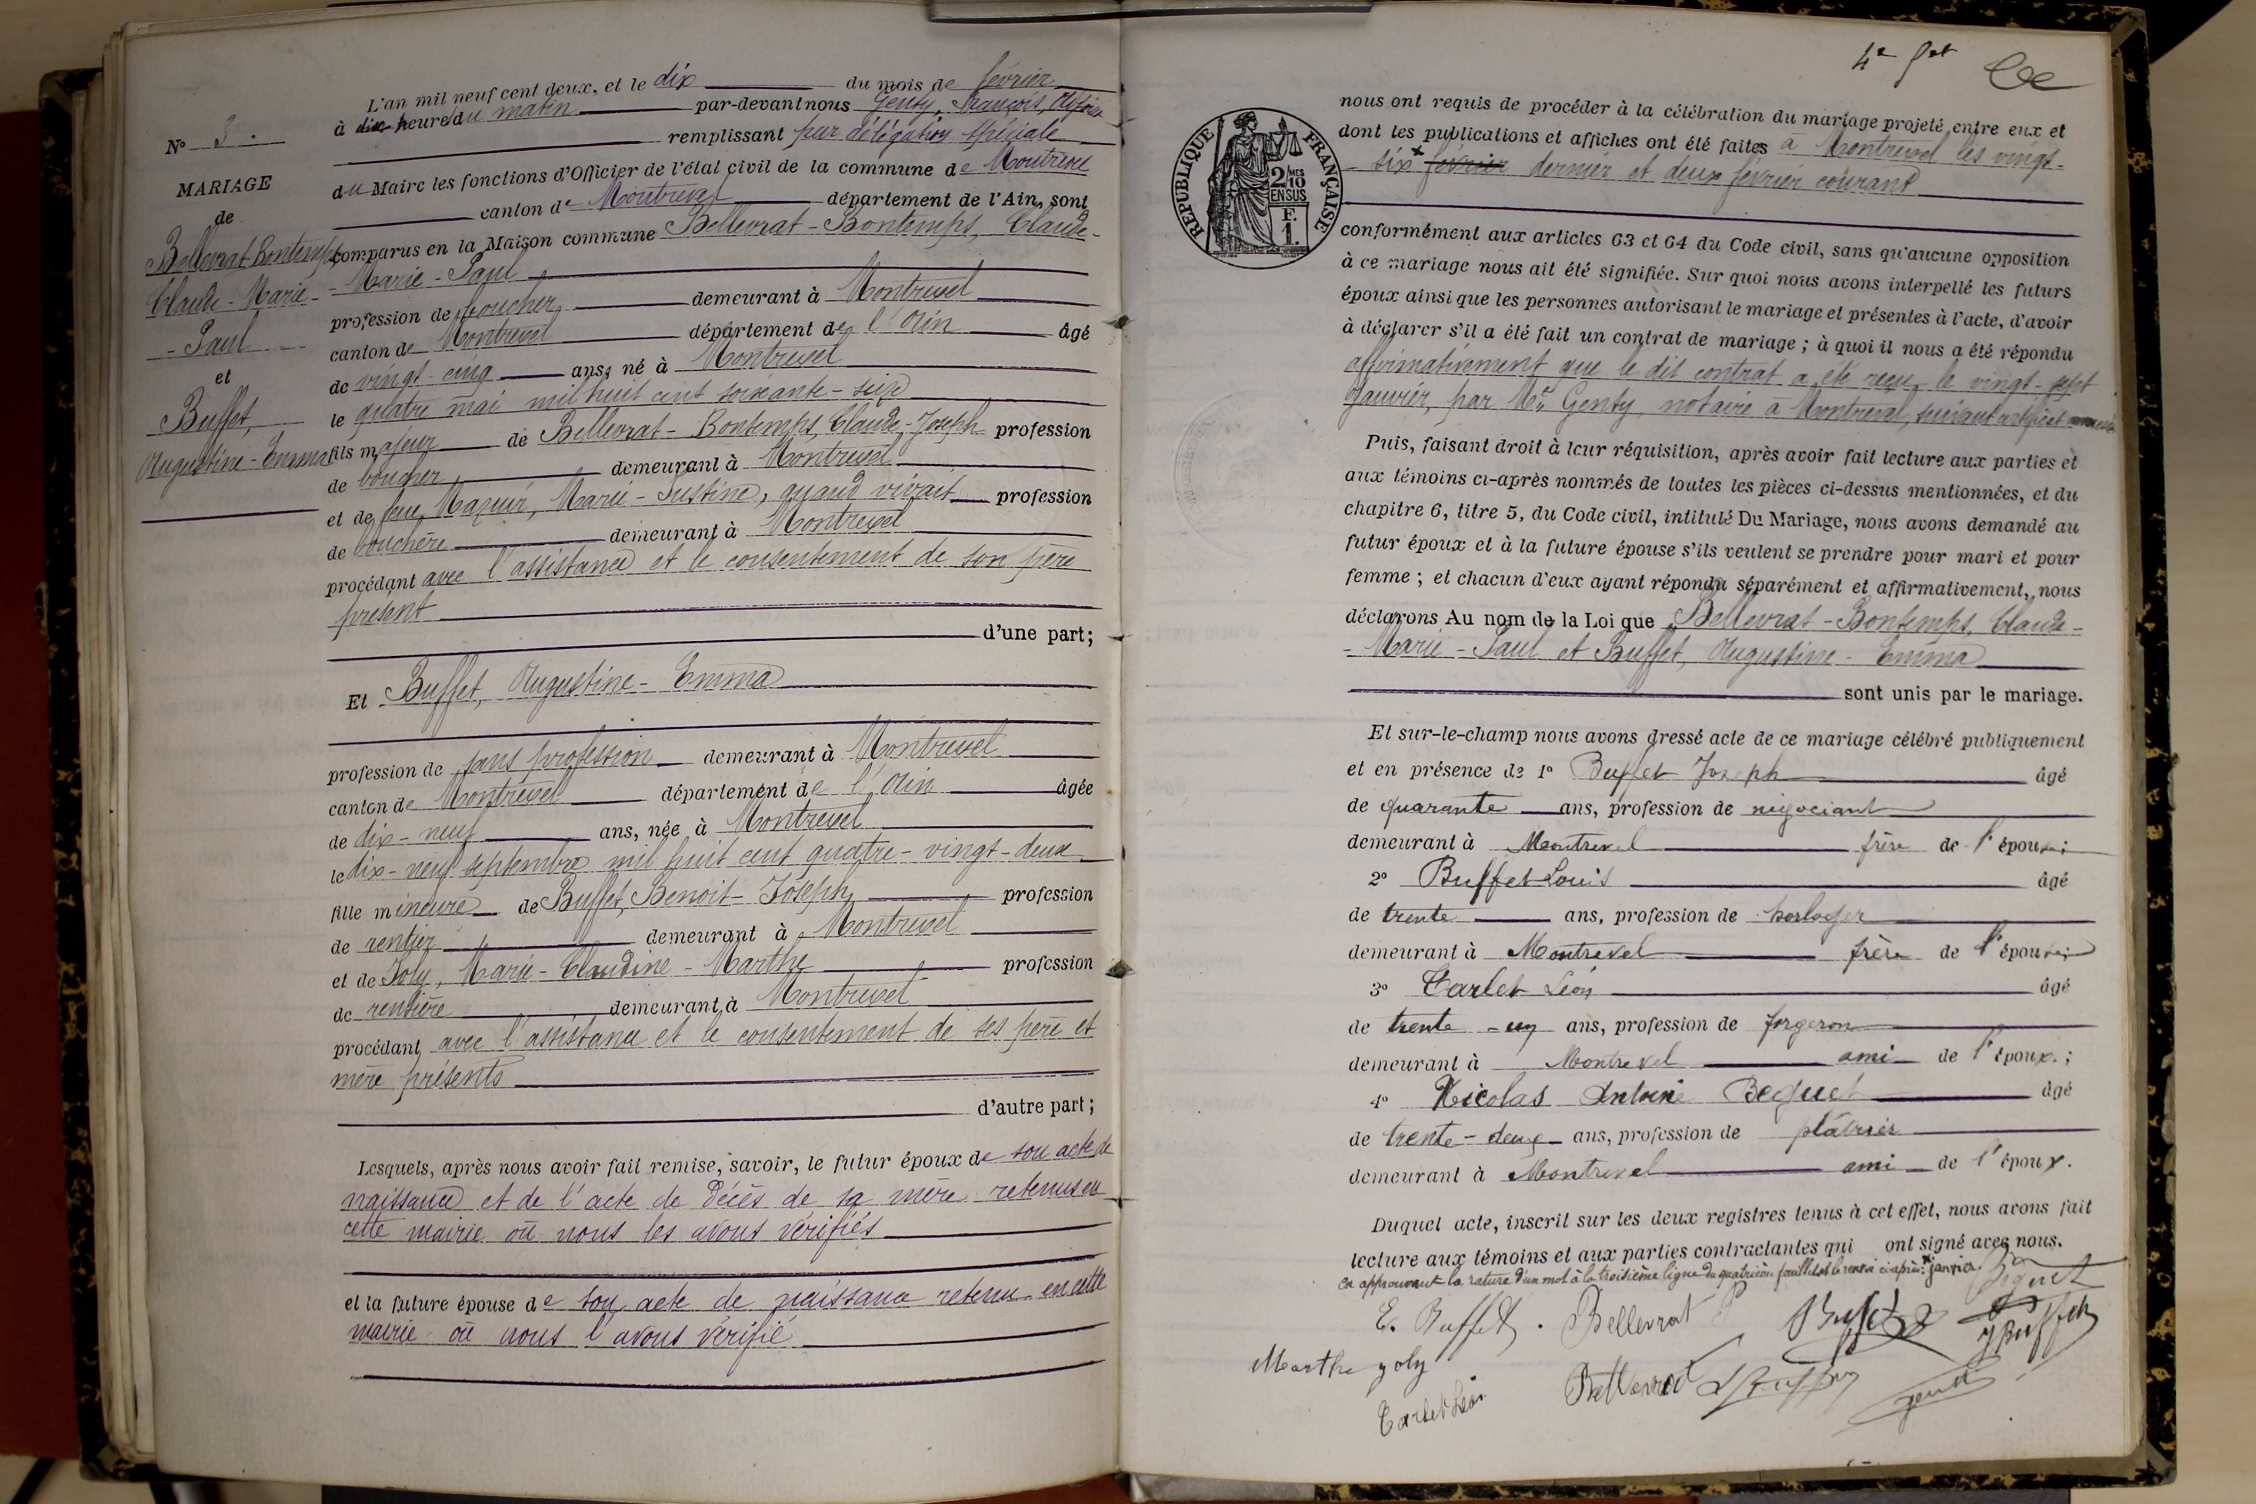 N° 3.
MARIAGE
de
Bellevrat-Bontemps
Claude-Marie-
-Paul
et
Buffet,
Augustine-Emma
L'an mil neuf cent deux, et le dix du mois de février
à dix heure du matin par-devant nous Genty, François, Adjoint
remplissant par délégation spéciale
du Maire les fonctions d'Officier de l'état civil de la commune de Montrevel
canton de Montrevel département de l'Ain, sont
comparus en la Maison commune Bellevrat-Bontemps, Claude-
-Marie-Paul
profession de boucher demeurant à Montrevel
canton de Montrevel département de l'Ain âgé
de vingt-cinq ans, né à Montrevel
le quatre mai mil huit cent soixante-seize
fils majeur de Bellevrat-Bontemps, Claude-Joseph profession
de boucher demeurant à Montrevel
et de feue Mazuir, Marie-Justine, quand vivait profession
de bouchère demeurant à Montrevel
procédant avec l'assistance et le consentement de son père
présent
d'une part;
Et Buffet, Augustine-Emma
profession de sans profession demeurant à Montrevel
canton de Montrevel département de l'Ain âgée
de dix-neuf ans, née à Montrevel
le dix-neuf septembre mil huit cent quatre-vingt-deux
fille mineure de Buffet, Benoit-Joseph profession
de rentier demeurant à Montrevel
et de Joly, Marie-Claudine-Marthe profession
de rentière demeurant à Montrevel
procédant avec l'assistance et le consentement de ses père et
mère présents
d'autre part;
Lesquels, après nous avoir fait remise, savoir, le futur époux de son acte de
naissance et de l'acte de décès de sa mère retenus en
cette mairie où nous les avons vérifiés
et la future épouse de son acte de naissance retenu en cette
mairie où nous l'avons vérifié
4e fet
RÉPUBLIQUE FRANÇAISE
2 MES
10
EN SUS
F.
1.
nous ont requis de procéder à la célébration du mariage projeté entre eux et
dont les publications et affiches ont été faites à Montrevel les vingt-
-six + février dernier et deux février courant
conformément aux articles 63 et 64 du Code civil, sans qu'aucune opposition
à ce mariage nous ait été signifiée. Sur quoi nous avons interpellé les futurs
époux ainsi que les personnes autorisant le mariage et présentes à l'acte, d'avoir
à déclarer s'il a été fait un contrat de mariage; à quoi il nous a été répondu
affirmativement que le dit contrat a été reçu le vingt-sept
janvier, par Me Genty, notaire à Montrevel, suivant certificat
Puis, faisant droit à leur réquisition, après avoir fait lecture aux parties et
aux témoins ci-après nommés de toutes les pièces ci-dessus mentionnées, et du
chapitre 6, titre 5, du Code civil, intitulé Du Mariage, nous avons demandé au
futur époux et à la future épouse s'ils veulent se prendre pour mari et pour
femme; et chacun d'eux ayant répondu séparément et affirmativement, nous
déclarons Au nom de la Loi que Bellevrat-Bontemps, Claude-
-Marie-Paul et Buffet, Augustine-Emma
sont unis par le mariage.
Et sur-le-champ nous avons dressé acte de ce mariage célébré publiquement
et en présence de 1° Buffet Joseph âgé
de quarante ans, profession de négociant
demeurant à Montrevel frère de l'épouse;
2° Buffet Louis âgé
de trente ans, profession de horloger
demeurant à Montrevel frère de l'épouse;
3° Carlet Léon âgé
de trente-un ans, profession de forgeron
demeurant à Montrevel ami de l'époux.;
4° Nicolas Antoine Bequet âgé
de trente-deux ans, profession de plâtrier
demeurant à Montrevel ami de l'époux.
Duquel acte, inscrit sur les deux registres tenus à cet effet, nous avons fait
lecture aux témoins et aux parties contractantes qui ont signé avec nous.
en approuvant la rature d'un mot à la troisième ligne du quatrième feuillet et le renvoi ci-après: + janvier.
Bequet
E. Buffet. Bellevrat P Buffet J Buffet
Marthe Joly
Carlet Léon Bellevrat L Buffet Genty